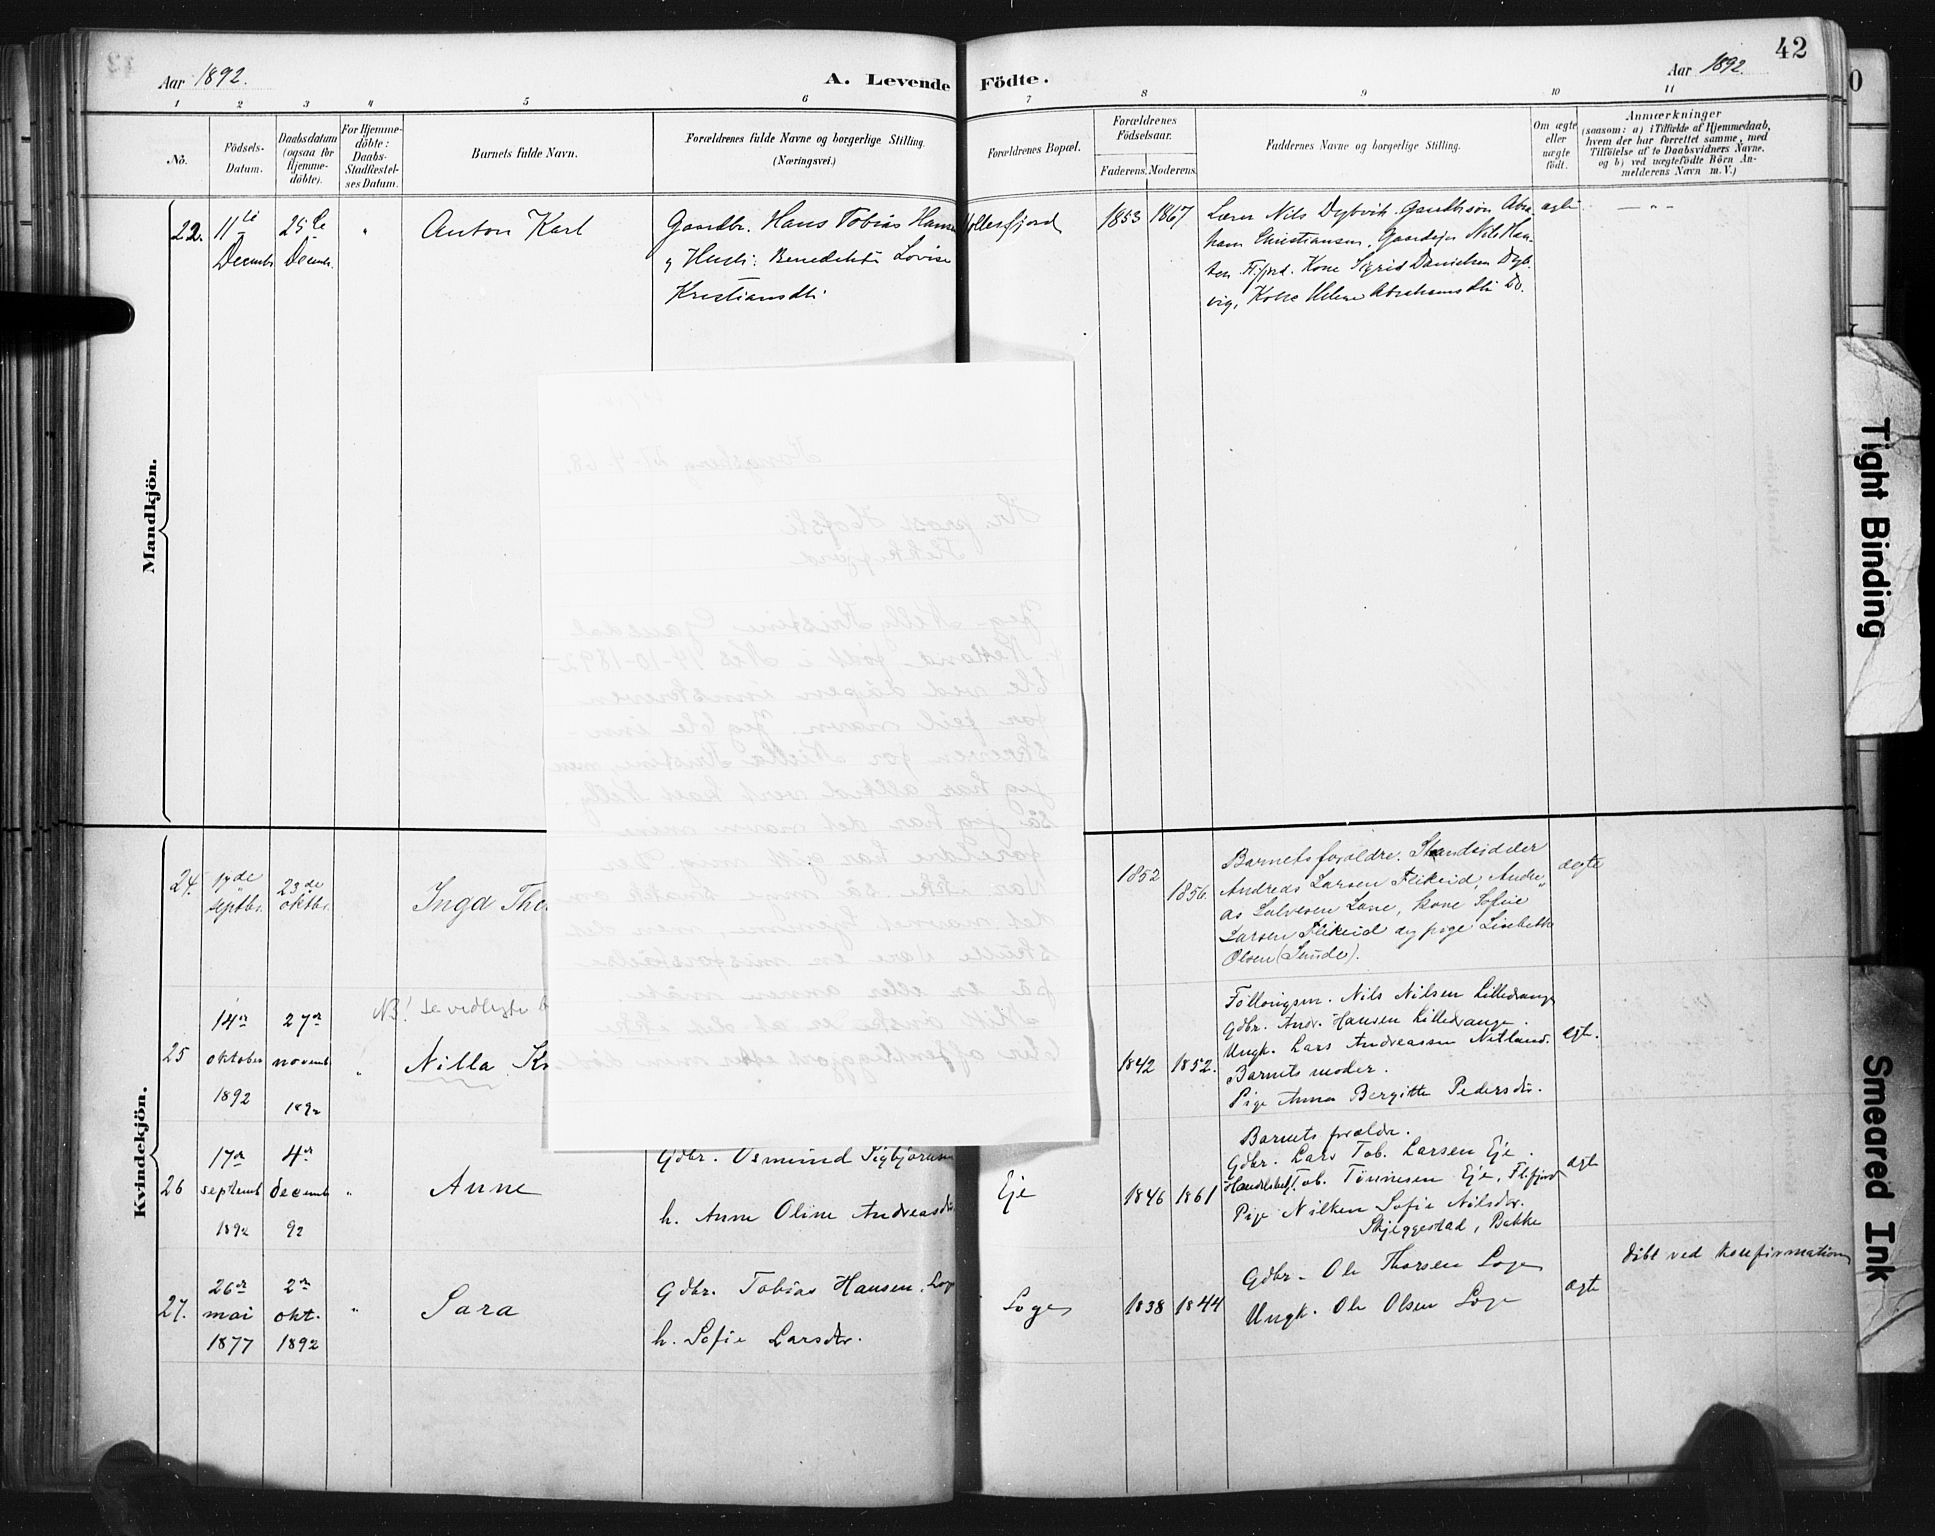 42
Aar 1892.
A. Levende Födte.
Aar 1892.
1 2 3 4 5 6 7 8 9 10 11
No.
Födsels-
Datum.
Daabsdatum
(ogsaa for
Hjemme-
döbte).
For Hjemme-
döbte:
Daabs-
Stadfæstel-
ses Datum.
Barnets fulde Navn.
Forældrenes fulde Navne og borgerlige Stilling.
(Næringsvei.)
Forældrenes Bopæl.
Forældrenes
Födselsaar.
Faderens. Moderens.
Faddernes Navne og borgerlige Stilling.
Om ægte
eller
uægte
født.
Anmærkninger
(saasom: a) i Tilfælde af Hjemmedaab,
hvem der har forrettet samme, med
Tilföielse af to Daabsvidners Navne.
og b) ved uægtefödte Börn An-
melderens Navn m. V.)
Mandkjön.
22. 11te
Decembr.
25te
Decembr.
"
Anton Karl
Gaardbr. Hans Tobias Hansen
og Hustr: Benedikte Lovise
Kristiansdtr:
1853 1867
Lærer Nils Dybvik. Gaardbsön Abra-
ham Christiansen, Gaardejer Nils Han-
sen Fl.fjord. Kone Sigrid Danielsen Dyb-
vig, Kone Helene Abrahamsdtr Do.
ægte
— " —
Kvindekjön.
24. 17de
septbr.
23de
oktbr.
Inga
1852
1856.
Barnets forældre.
Andreas Larsen Flikeid, Andre-
as Salvesen Lone, kone Sofie
Larsen Flikeid og pige Lisbeth
Olsen (Sunde).
ægte
NB! se vedlagte
25
14de
oktober
1892
27de
novemb
1892
"
Nilla
1842 1852.
Föllougsm. Nils Nilsen Lilledrange
Gdbr. Andr. Hansen Lilledrange.
Ungk. Lars Andreassen Netland.
Barnets moder.
Pige Anna Bergitte Pedersdtr.
egte.
26
17de
septemb
1892
4de
decemb
92
"
Anne
Gdbr. Osmund Sigbjörnsen
h. Anne Oline Andreasdtr
Eje
1846 1861
Barnets forældr.
Gdbr. Lars Tob. Larsen Eje.
Tob. Tönnesen Eje, Fl.fjord
Pige Nilken Sofie Nilsdtr.
Skjeggestad, Bakke
ægte
27.
26de
mai
1877
2de
okt.
1892
"
Sara
Gdbr. Tobias Hansen, Loge
h. Sofie Larsdtr.
Loge
1838 1844
Gdbr. Ole Thorsen Loge
Ungk. Ole Olsen Loge
ægte
döbt ved konfirmation
Kongsberg 21-4-68.
Hr. prost Hafsti
Flekkefjord
Jeg Nelly Kristine Gausdal
f. Netland född i Nes 14-10-1892
ble ved dåpen innskreven
for feil navn. Jeg ble inn-
skreven for Nilla Kristine, men
jeg har alltid vert kalt Nelly.
Så jeg har det navn mine
foreldre har gitt meg.
skulle være en misforståelse
på en eller annen måte.
Tight Binding
Smeared Ink